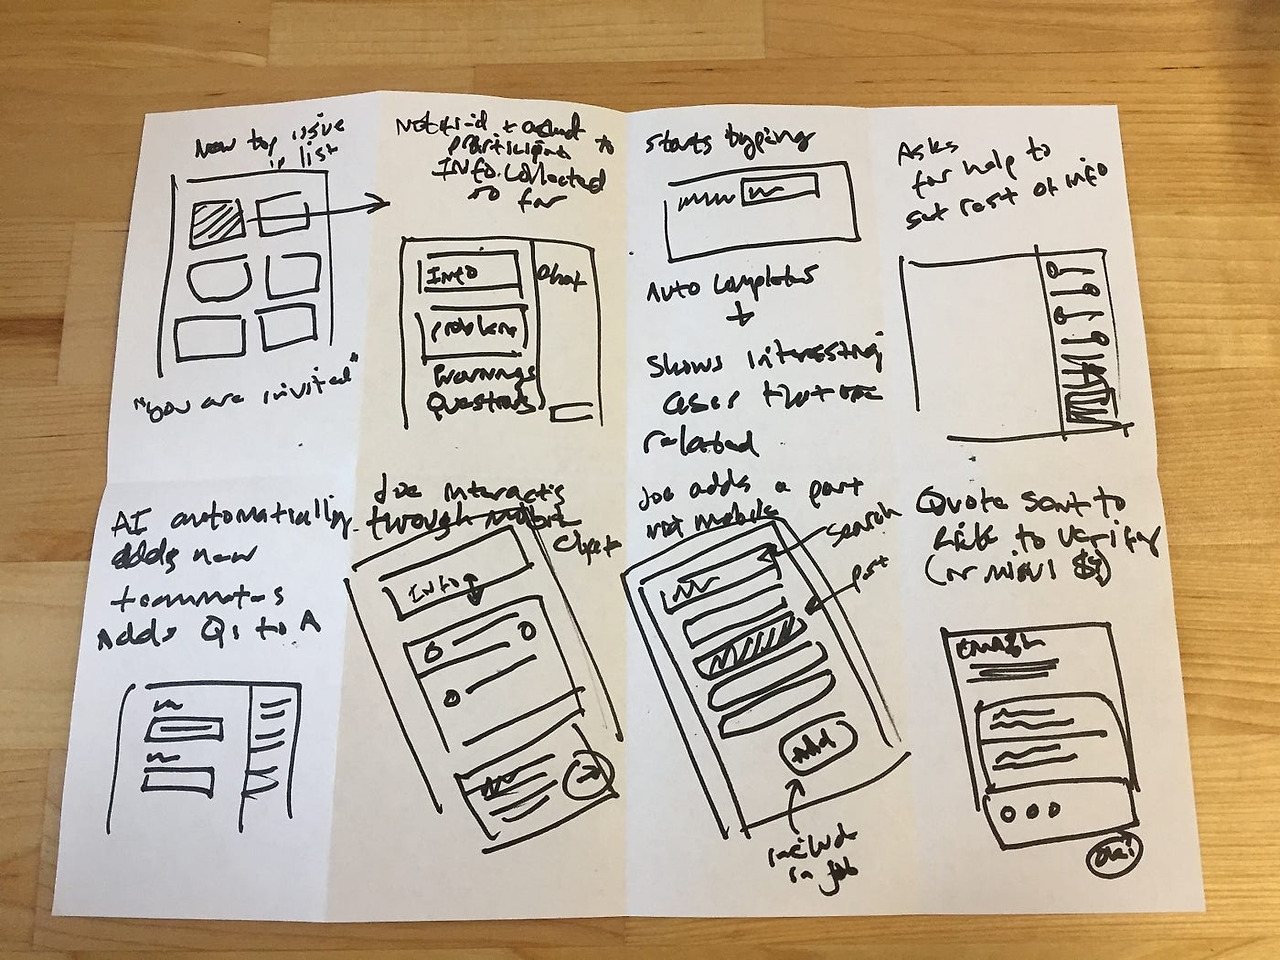 New top issue
in list
"you are invited"
participants to
Info collected
so far
Info
Chat
problem
Warnings
Questions
starts typing
Auto completes
+
shows interesting
cases that are
related
Asks
for help to
get rest of info
AI automatically
adds new
teammates
Adds Q1 to A
Joe interacts
through mobile
Info
Joe adds a part
mobile
search
part
Add
include
in job
Quote sent to
to verify
email